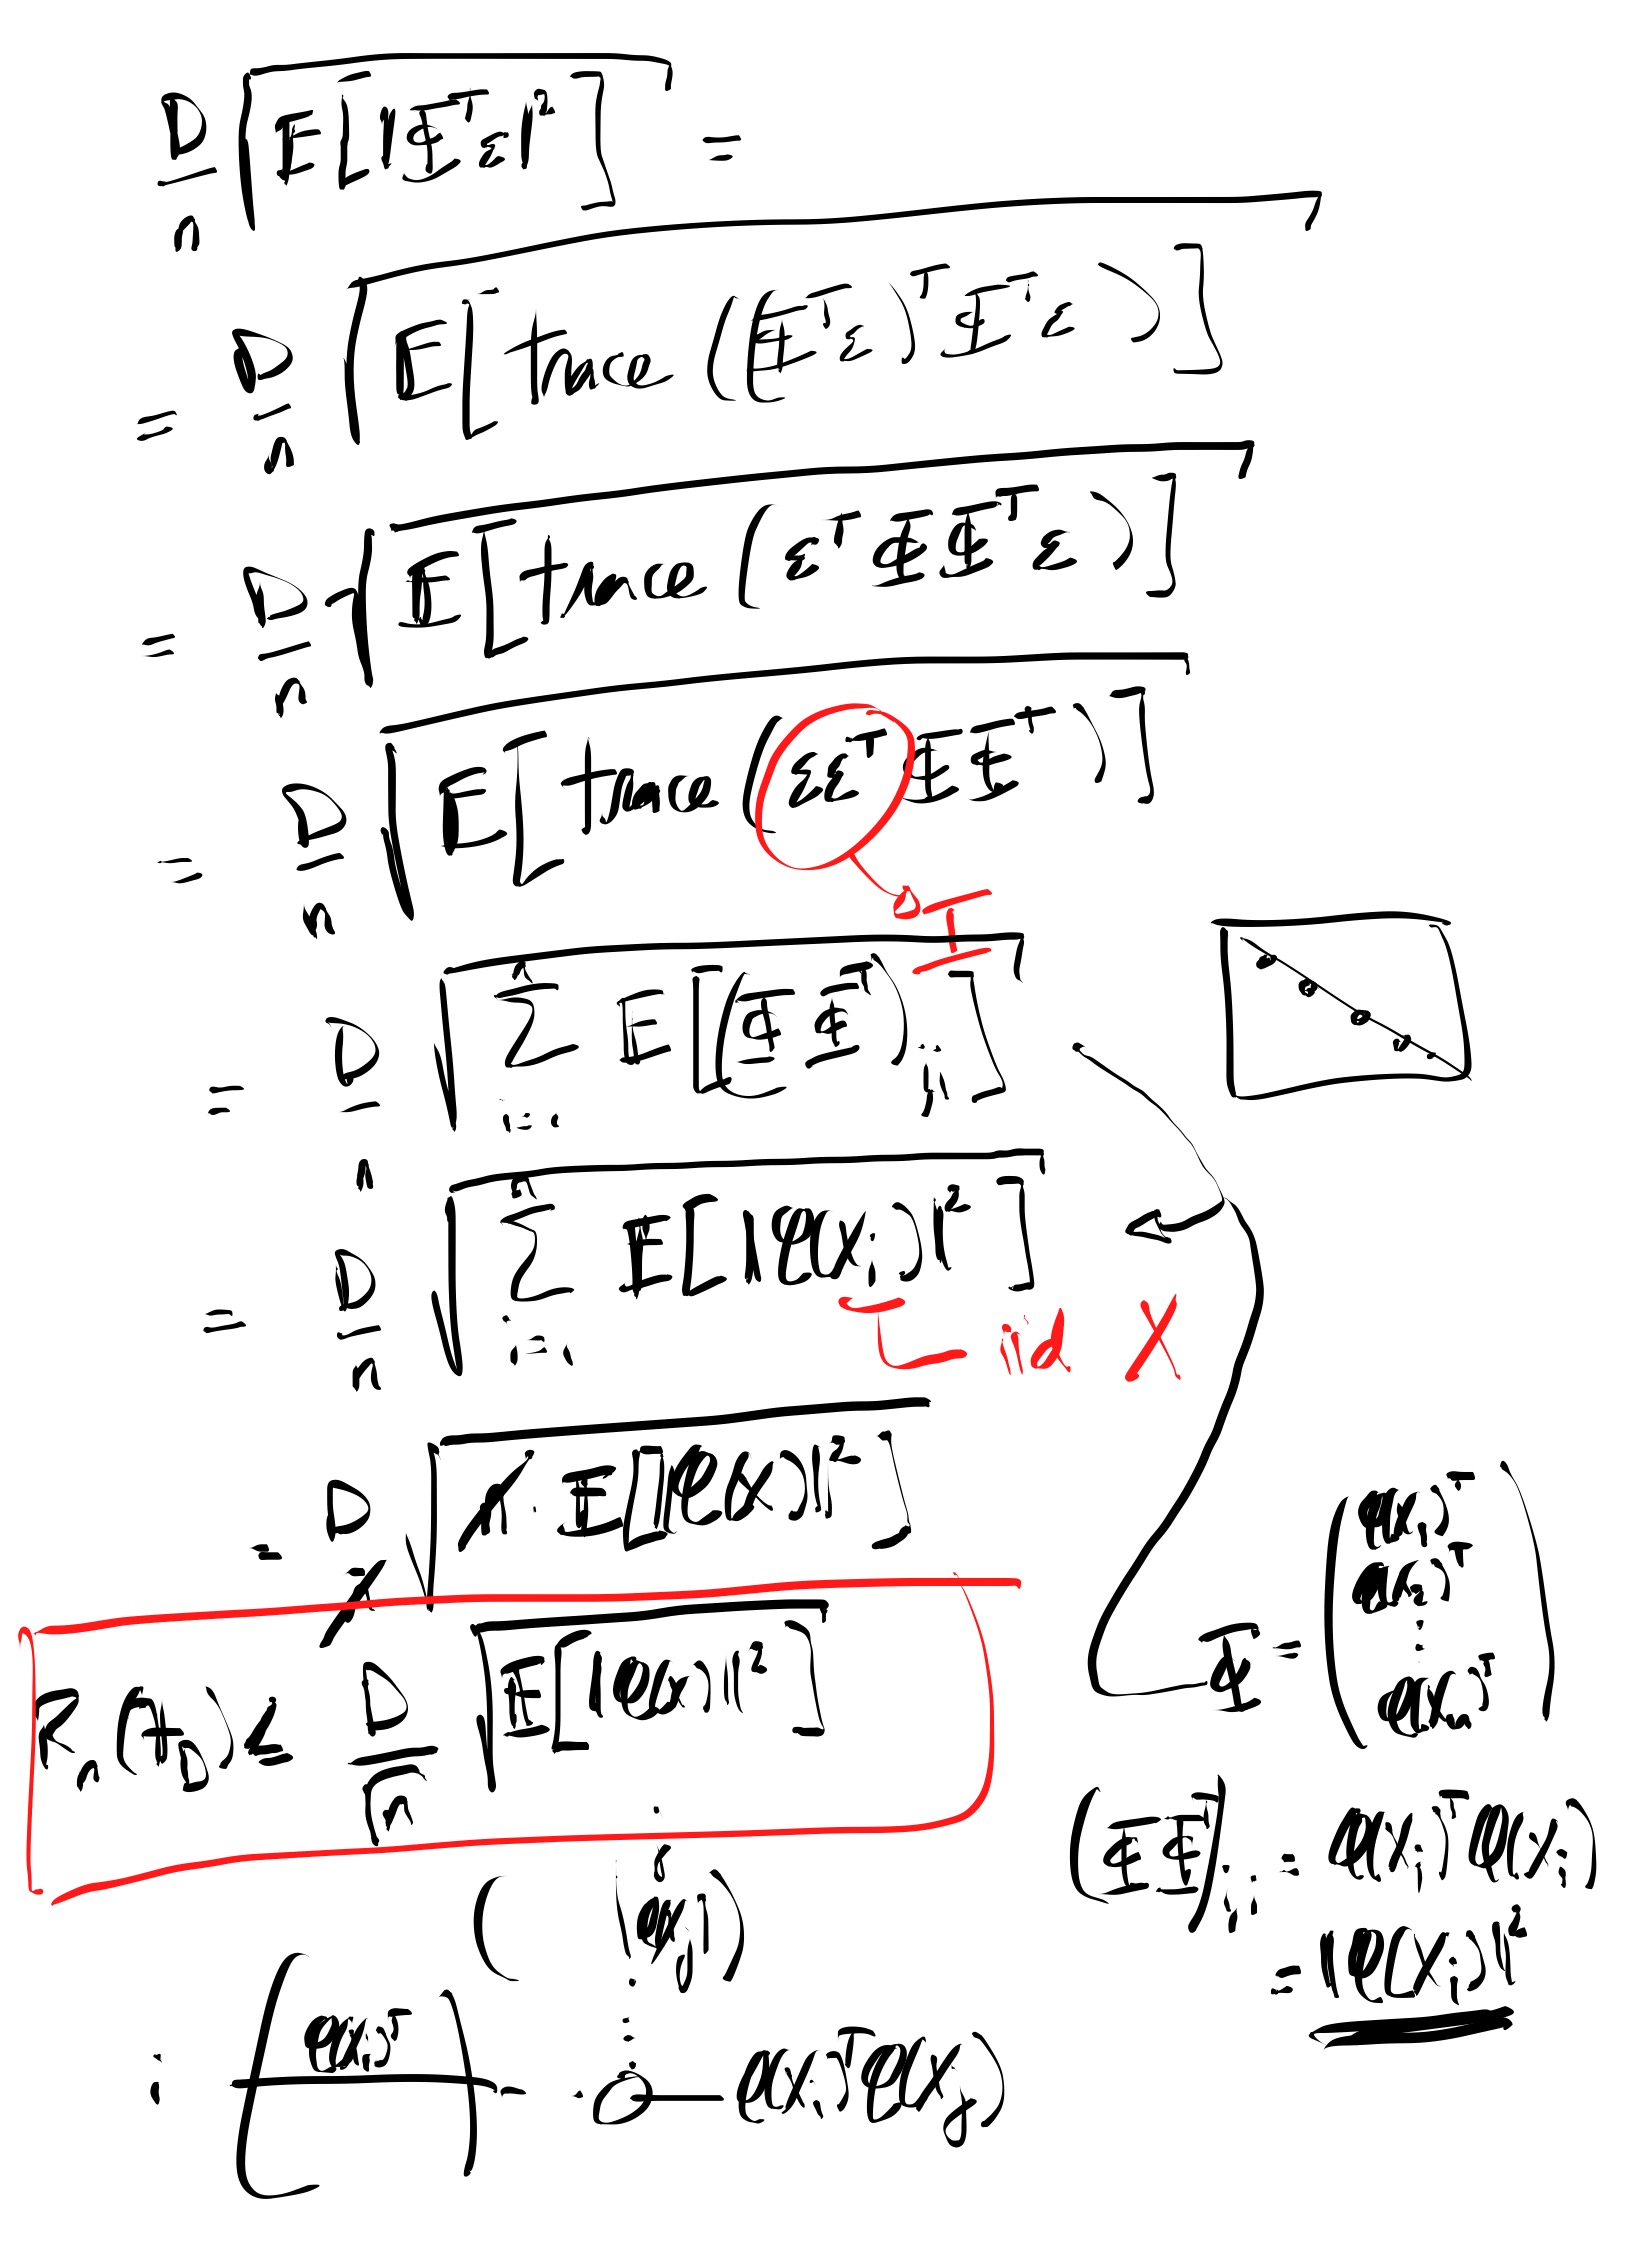 D/n √(E[‖Φᵀε‖²]) =
= D/n √(E[trace((Φᵀε)ᵀΦᵀε)])
= D/n √(E[trace(εᵀΦΦᵀε)])
= D/n √(E[trace(εεᵀΦΦᵀ)])
I
= D/n √(∑ᵢ₌₁ⁿ E[(ΦΦᵀ)ᵢᵢ])
= D/n √(∑ᵢ₌₁ⁿ E[‖φ(xᵢ)‖²])
iid X
= D/n √(n · E[‖φ(x)‖²])
Rₙ(A_D) ≤ D/√n √(E[‖φ(x)‖²])
Φ = (φ(x₁)ᵀ
φ(x₂)ᵀ
⋮
φ(xₙ)ᵀ)
(ΦΦᵀ)ᵢᵢ = φ(xᵢ)ᵀφ(xᵢ)
= ‖φ(xᵢ)‖²
( |φ(xⱼ)| )
i (φ(xᵢ)ᵀ) φ(xᵢ)ᵀφ(xⱼ)